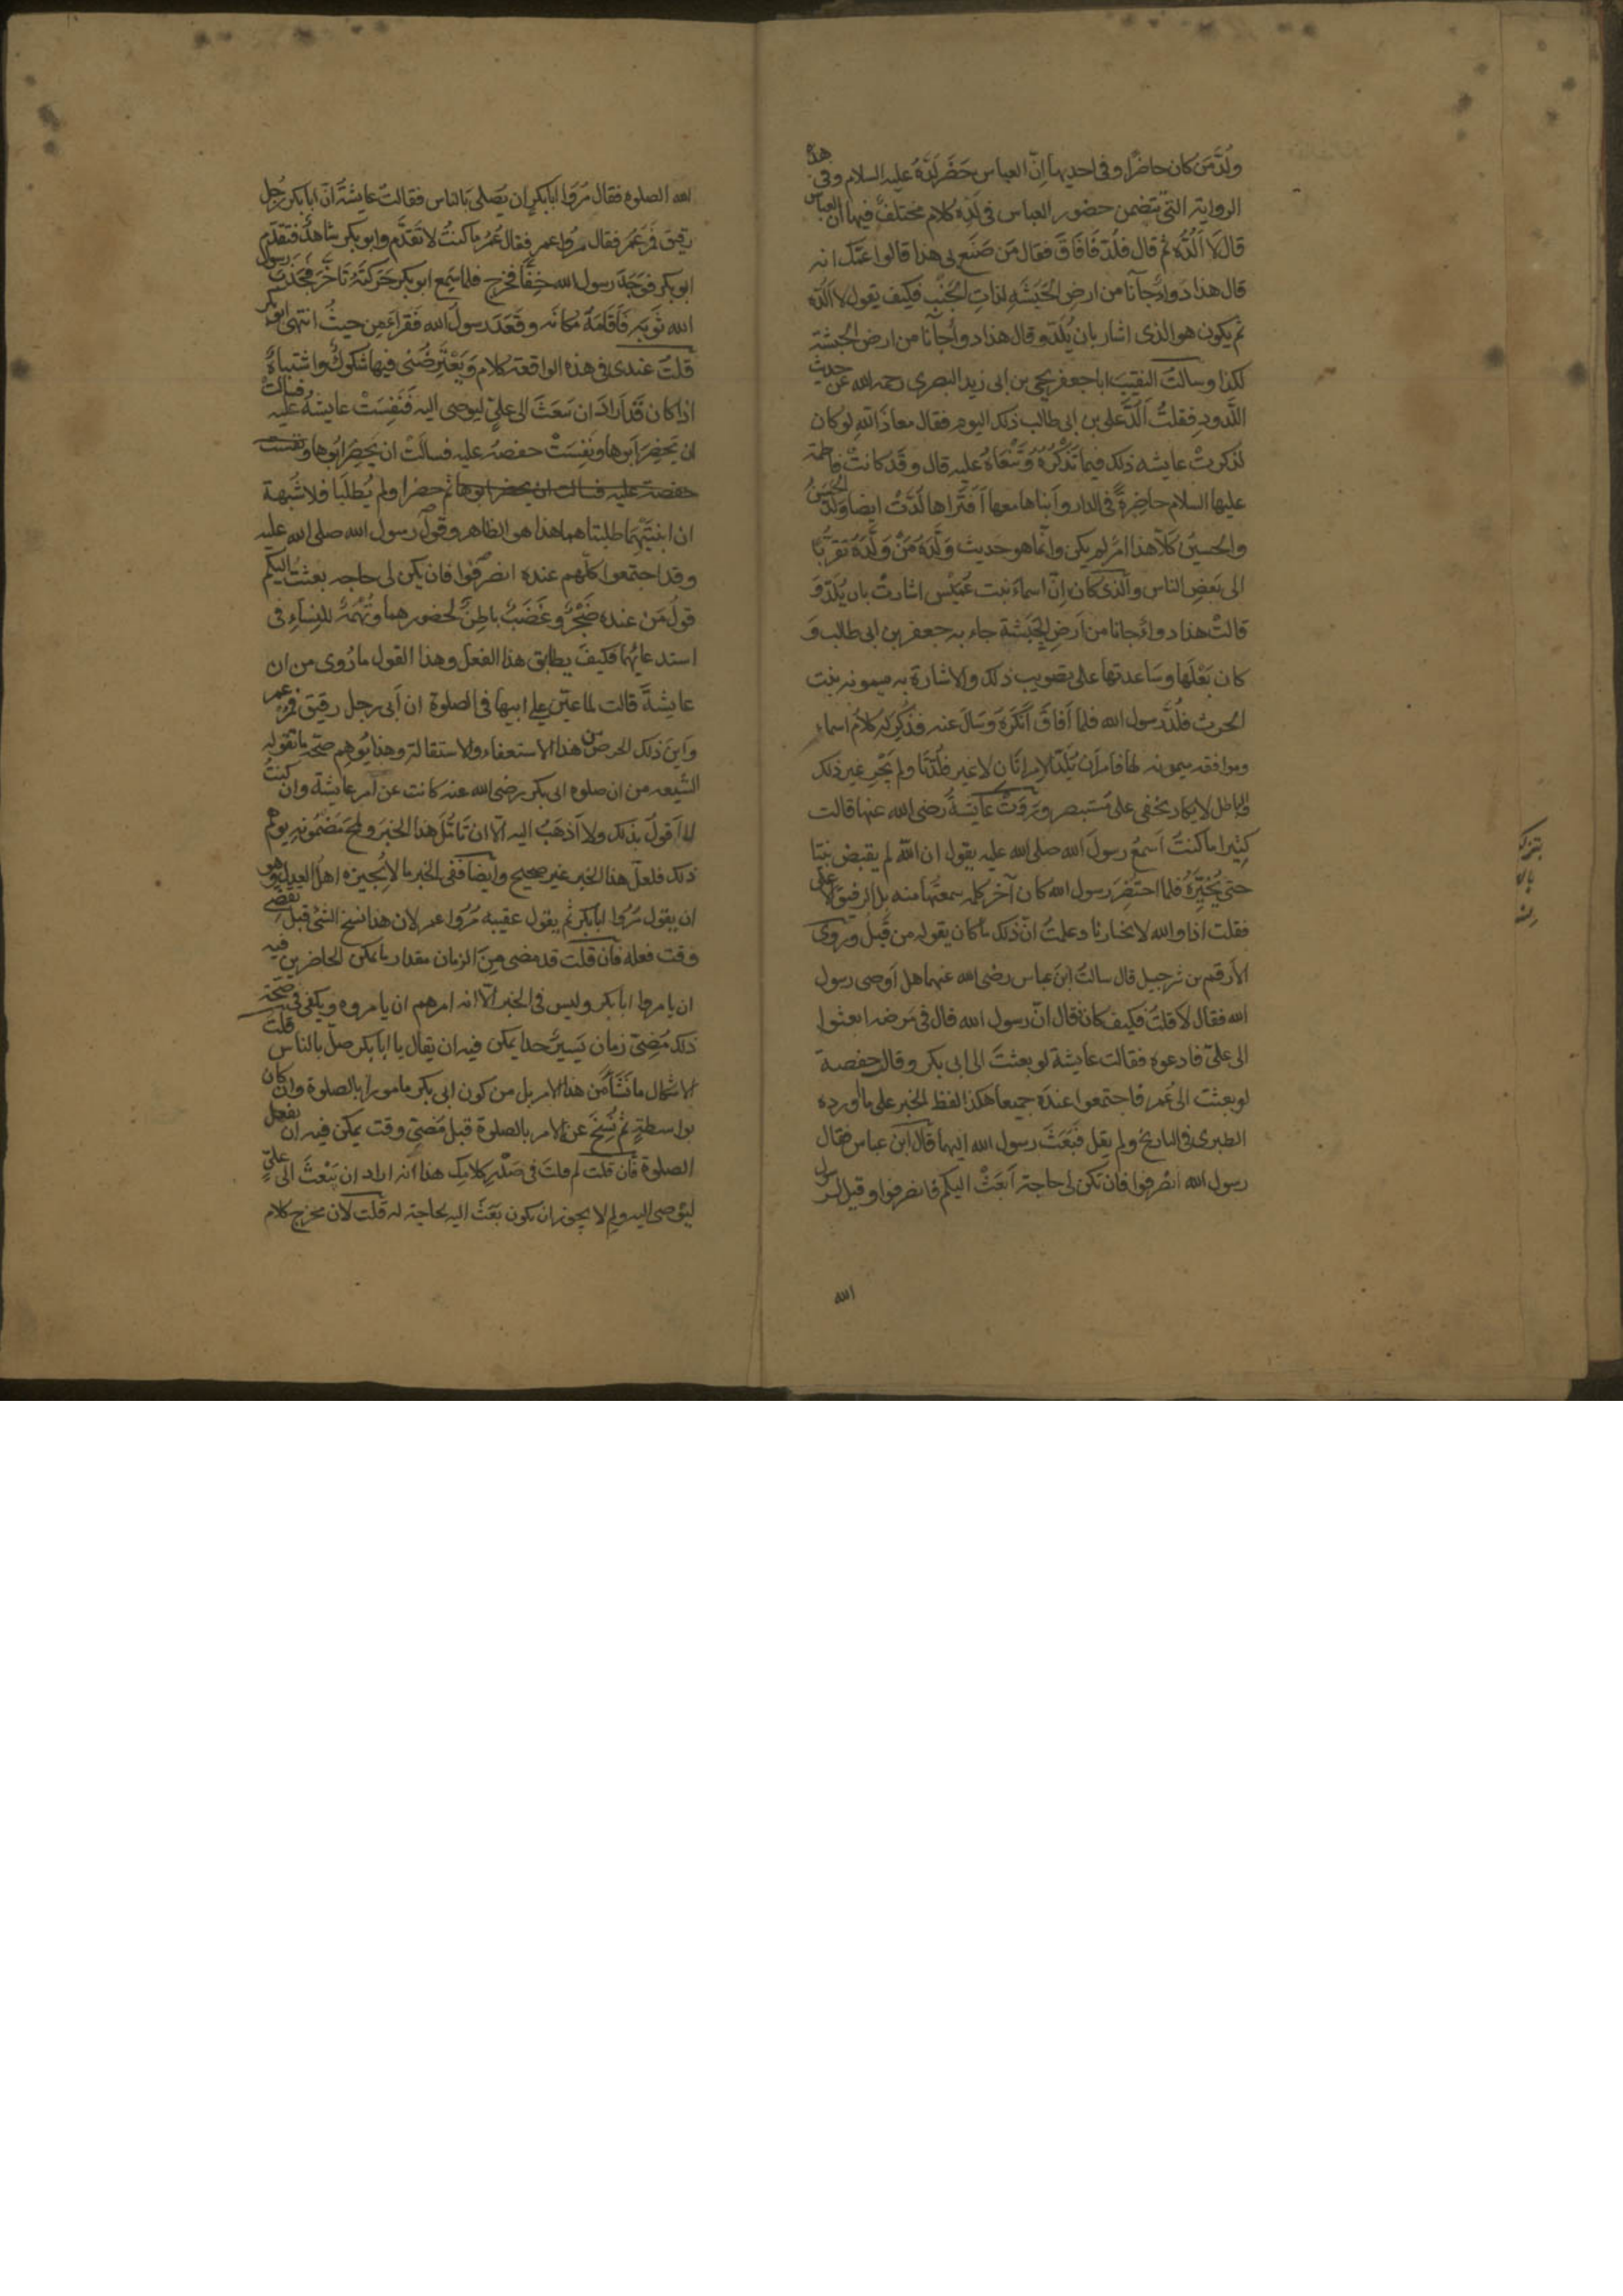 ولُدَّ مَن كان حاضرًا وفى احديهما اِنّ العباس حَضَر لَدَّهُ عليه السلام وفى هذه
الرواية التى تتضمن حضور العباس فى لَدِّه كلام مختلف فيها ان العباس
قال لا اَلُدُّه ثم قال فلُدَّ فَاَفَاقَ فقال مَن صَنَع بى هذا قالوا عمّك انه
قال هذا دَواء جآنا من ارض الحَبَشَهِ لذاتِ الجَنْبِ فكيف يقول لا اَلُدّه
ثم يكون هو الذى اشار بان يُلَدّ و قال هذا دواء جآنا من ارض الحبشة
لكذا وسالتُ النقيبَ ابا جعفر يحيى بن ابى زيد البصرى رحمه الله عن حديث
اللَّدود فقلتُ اَلُدَّ على بن ابى طالب ذلك اليوم فقال معاذ الله لو كان
لذكرتْ عايشه ذلك فيما تَذْكُرُهُ وَتَنْعَاهُ عليه قال و قد كانت فاطمة
عليها السلام حاضِرةً فى الدار وابناها معها اَفَتَراها لُدَّتْ ايضا ولُدّ الحسَنُ
والحسينُ كَلّا هذا امرٌ لم يكن وانّما هو حديث وَلَّدَهُ مَنْ وَلَّدَهُ تقرّبًا
الى بَعضِ الناس والذى كان اِنّ اسماءَ بنت عُمَيْس اشارتْ بان يُلَدّ وَ
قالتْ هذا دواء جانا من اَرضِ الحَبَشة جاء به جعفر بن ابى طالب وَ
كان بَعْلَها وسَاعدتها على تصويب ذلك والاشارة به ميمونه بنت
الحرث فلُدَّ رسول الله فلما اَفاقَ اَنكَرَهُ وَسَالَ عنه فذُكِرَ له كلامُ اسماء
وموافقه ميمونه لها فامر اَن تُلَدّ الامراتان لا غير فلُدّتَا ولم يَجْرِ غير ذلك
والباطل لا يكاد يخفى على مُستبصر وَرَوَتْ عَايَشةُ رضى الله عنها قالت
كثيرا ما كنتُ اَسمعُ رسولَ الله صلى الله عليه يقول ان الله لم يقبض نبيّا
حتى يُخَيّرهُ فلما احتُضِرَ رسول الله كان آخر كلمه سمعتُها منه بل الرفيق الاعلى
فقلت اذا والله لا يختارنا وعلمتُ انّ ذلك ما كان يقوله من قَبلُ ورَوى
الاَرقم بن شرحبيل قال سالتُ ابنَ عباس رضى الله عنهما هل اَوصى رسول
الله فقال لا قلتُ فكيف كان قال انّ رسول الله قال فى مَرضه ابعثوا
الى علىّ فادعوه فقالت عايشة لو بعثتَ الى ابى بكر وقال حفصة
لو بعثت الى عُمَر فاجتمعوا عندَه جميعا هكذا لفظ الخبر على ما اَورده
الطبرى فى التاريخ ولم يقل فَبَعَثَ رسول الله اليهما قال ابن عباس فقال
رسول الله انصَرفوا فان تكن لى حاجة اَبعَثْ اليكم فانصرفوا وقيل لرسول
الله
الله الصلوه فقال مُروا ابابكرٍ ان يُصلىَ بالناس فقالتْ عايشةُ انّ ابابكر رَجُل
رقيق فمُر عُمَر فقال مروا عمر فقال عُمَرُ ما كنتُ لاَتَقدَّم وابو بكر شاهدٌ فتقدّم
ابو بكر فوَجَدَ رسول الله خِفّةً فخرج فلما سَمِع ابو بكر حَرَكتَهُ تَاخّرَ فجَذَبَ رسول
الله ثَوبَه فَاَقَامَهُ مكانَه وقَعَدَ رسول الله فقراَ مِن حيثُ انتهى ابو بكر
قلتُ عندى فى هذه الواقعة كلام وَيَعْتَرِضُنى فيها شكوكٌ واشتباهٌ
اذا كان قَد اَرادَ ان يَبعَثَ الى علىّ ليوصى اليه فَنَفِسَتْ عايشةُ عليه فسالتْ
ان يَحضِر اَبوها ونَفِسَتْ حفصهُ عليه فسالَتْ ان يَحضِر اَبُوها ونفست
حفصة عليه فسالت ان يحضر ابوها ثم حضرا ولم يُطلَبا فلا شُبهة
ان ابنَتَيهما طلبتاهما هذا هو الظاهر وقولُ رسول الله صلى الله عليه
وقد اجتمعوا كلّهم عنده انصَرِفوا فان يكن لى حاجه بعثتُ اليكم
قولُ مَن عنده ضَجْرٌ وغَضَبٌ باطِنٌ لحضورهما وتُهَمَةٌ للنِساءِ فى
استدعائهما فكيفَ يطابق هذا الفعل وهذا القول ما رُوى من ان
عايشةَ قالت لما عيّن على ابيها فى الصلوة ان اَبى رجل رقيق فمُر عمر
واَينَ ذلك الحرص من هذا الاستعفاء والاستقالة وهذا يُوهِم صحّة ما تقوله
الشيعه من ان صلوه ابى بكر رضى الله عنه كانت عن امر عايشة وان كنتُ
لا اَقولُ بذلك ولا اَذهَبُ اليه الّا ان تَاَمُّلَ هذا الخبَر ولَمْحَ مَضمُونِه يوهم
ذلك فلعلّ هذا الخبر غير صحيح وايضا ففى الخبر ما لا يُجيزه اهلُ العدل وهو
ان يقول مُرُوا ابابكر ثم يقول عقيبه مُرُوا عمر لان هذا نسخ الشئ قبل تقضّى
وقت فعله فان قلتَ قد مضى مِنَ الزمان مقدار ما يمكن الحاضرين فيه
ان يامروا ابابكر وليس فى الخبر الّا انه امرهم ان يامروه ويكفى فى صحّة
ذلك مُضِىّ زمان يَسيرٍ جدا يمكن فيه ان يقال يا ابابكر صلّ بالناس قلتُ
الاشكال ما نَشَأ من هذا الامر بل من كون ابى بكر مامورا بالصلوة وان كان
بواسطةٍ ثم نُسِخَ عن الامر بالصلوة قبل مُضىّ وقت يمكن فيه ان يفعل
الصلوة فان قلت لم قلتَ فى صَدْرِ كلامِك هذا انه اراد ان يَبْعثَ الى علىّ
ليُوصى اليه ولم لا يجوز ان يكون بَعَثَ اليه لحاجة له قلت لان مخرج كلام